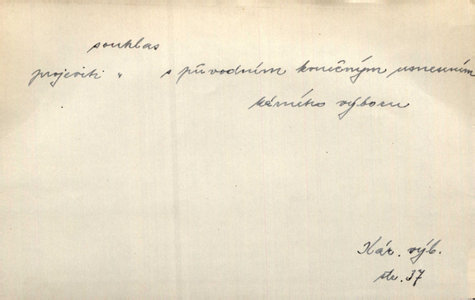 souhlas
projeviti " s původním konečným usnesením
kárného výboru
Kár. výb.
str. 37